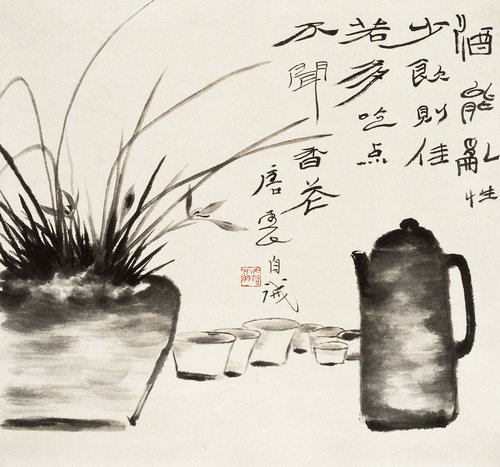 酒能亂性
少飲則佳
若多吃点
不聞香花
唐雲自誡